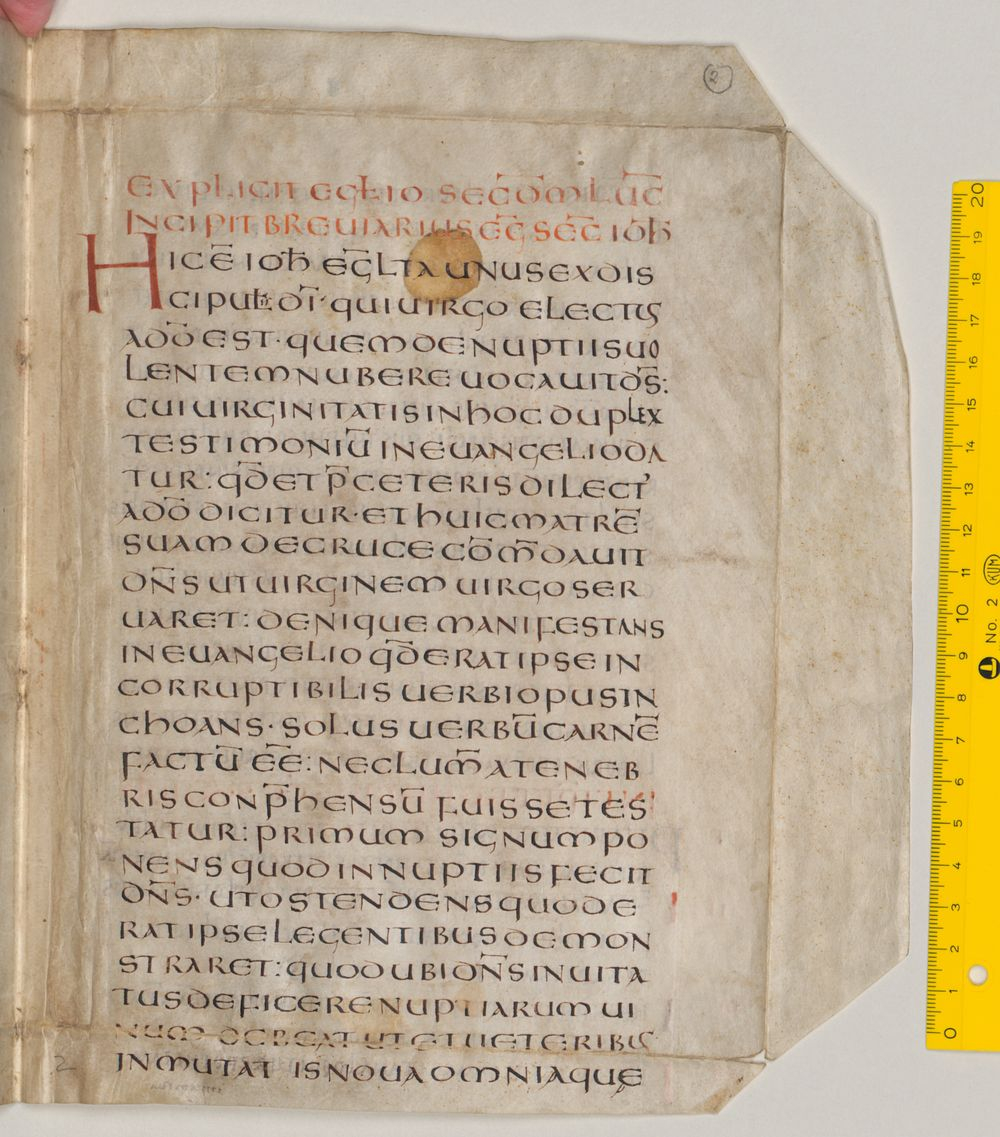 EXPLICIT EGŁIO SECD̄M LUC̄
INCIPIT BREUIARIUS EḠ SEC̄ IOħ
HIC Ē IOħ EḠLTA UNUS EX DIS
CIPUŁ DĪ· QUI UIRGO ELECTUS
A DŌ EST· QUEM DE NUPTIIS UO
LENTEM NUBERE UOCAUIT D̄S:
CUI UIRGINITATIS IN HOC DUPLEX
TESTIMONIŪ IN EUANGELIO DA
TUR: QD̄ ET P̄ CETERIS DILECT'
A DŌ DICITUR· ET HUIC MATRĒ
SUAM DE CRUCE COM̄DAUIT
DN̄S UT UIRGINEM UIRGO SER
UARET: DENIQUE MANIFESTANS
IN EUANGELIO QD̄ ERAT IPSE IN
CORRUPTIBILIS UERBI OPUS IN
CHOANS· SOLUS UERBŪ CARNĒ
FACTŪ EĒ: NEC LUM̄ A TENEB
RIS CONP̄HENSŪ FUISSE TES
TATUR: PRIMUM SIGNUM PO
NENS QUOD IN NUPTIIS FECIT
DN̄S· UT OSTENDENS QUOD E
RAT IPSE LEGENTIBUS DEMON
STRARET: QUOD UBI DN̄S INUITA
TUS DEFICERE NUPTIARUM UI
NUM DEBEAT UT ET UETERIBUS
INMUTATIS NOUA OMNIA QUE
2
2
0 1 2 3 4 5 6 7 8 9 10 11 12 13 14 15 16 17 18 19 20
No. 2
KUM